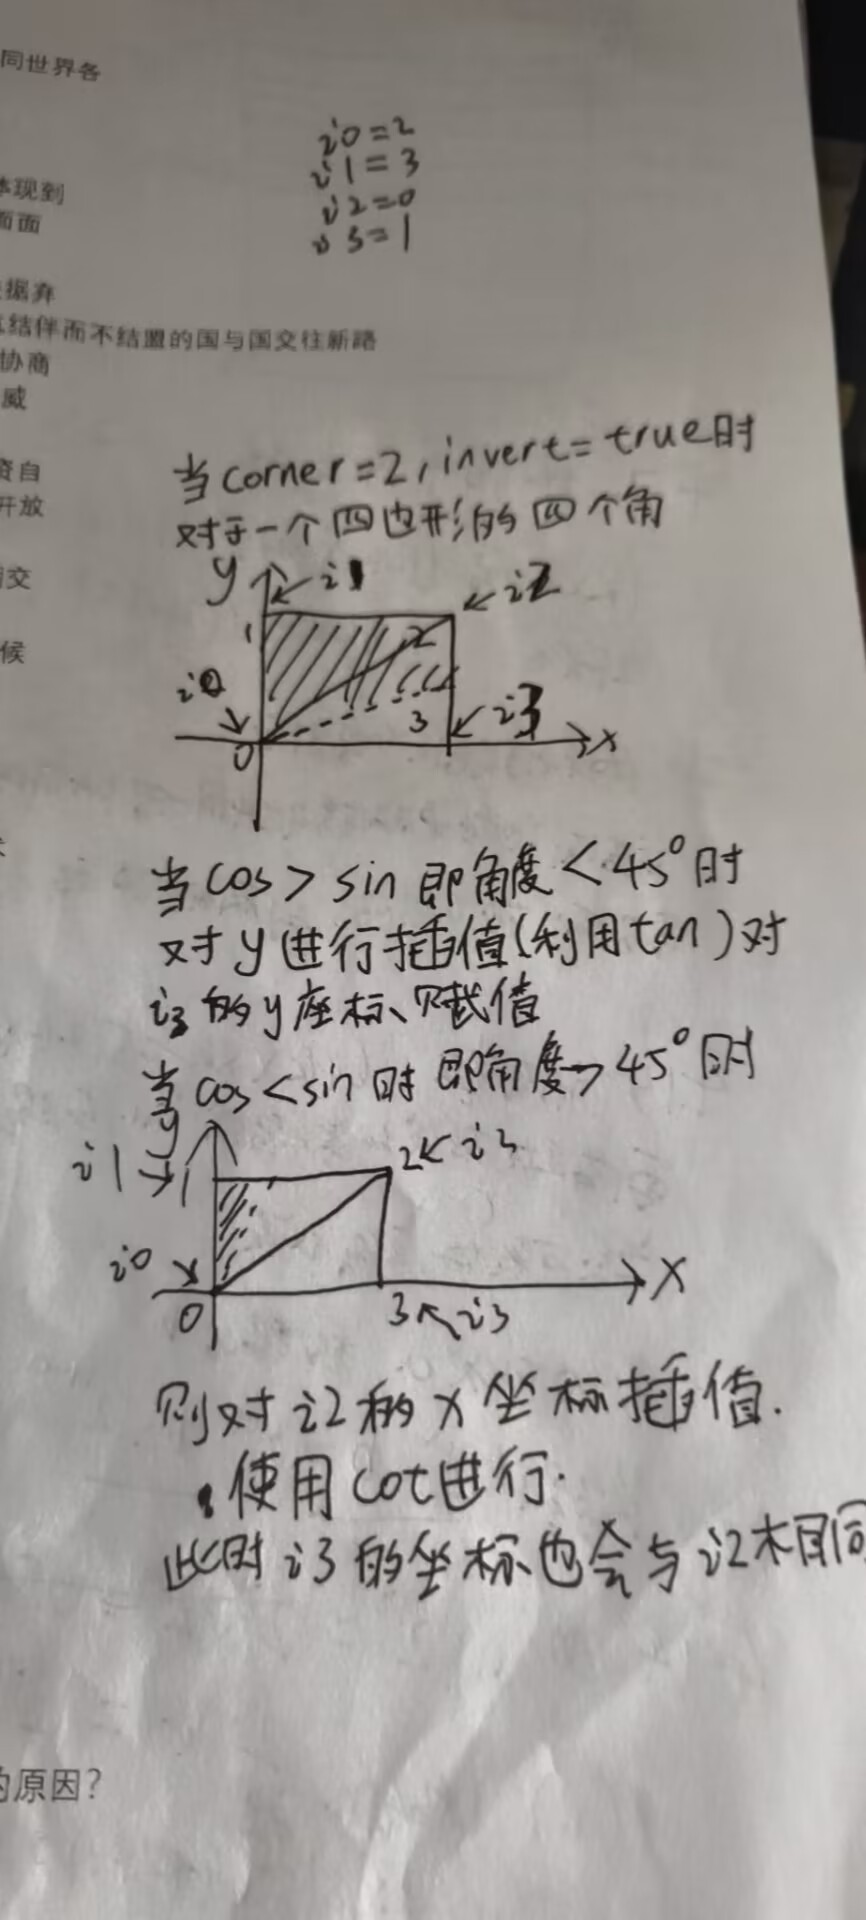 同世界各
i0=2
i1=3
i2=0
i3=1
体现到
面面
据弃
结伴而不结盟的国与国交往新路
协商
威
资自
开放
交
候
当corner=2,invert=true时
对于一个四边形的四个角
y
i1
i2
1
2
i0
3
i3
0
x
当cos>sin即角度<45°时
对y进行插值(利用tan)对
i3的y座标、赋值
当cos<sin时即角度>45°时
y
i1
1
2
i2
i0
0
x
3
i3
则对i2的x坐标插值.
使用cot进行.
此时i3的坐标也会与i2相同
的原因?